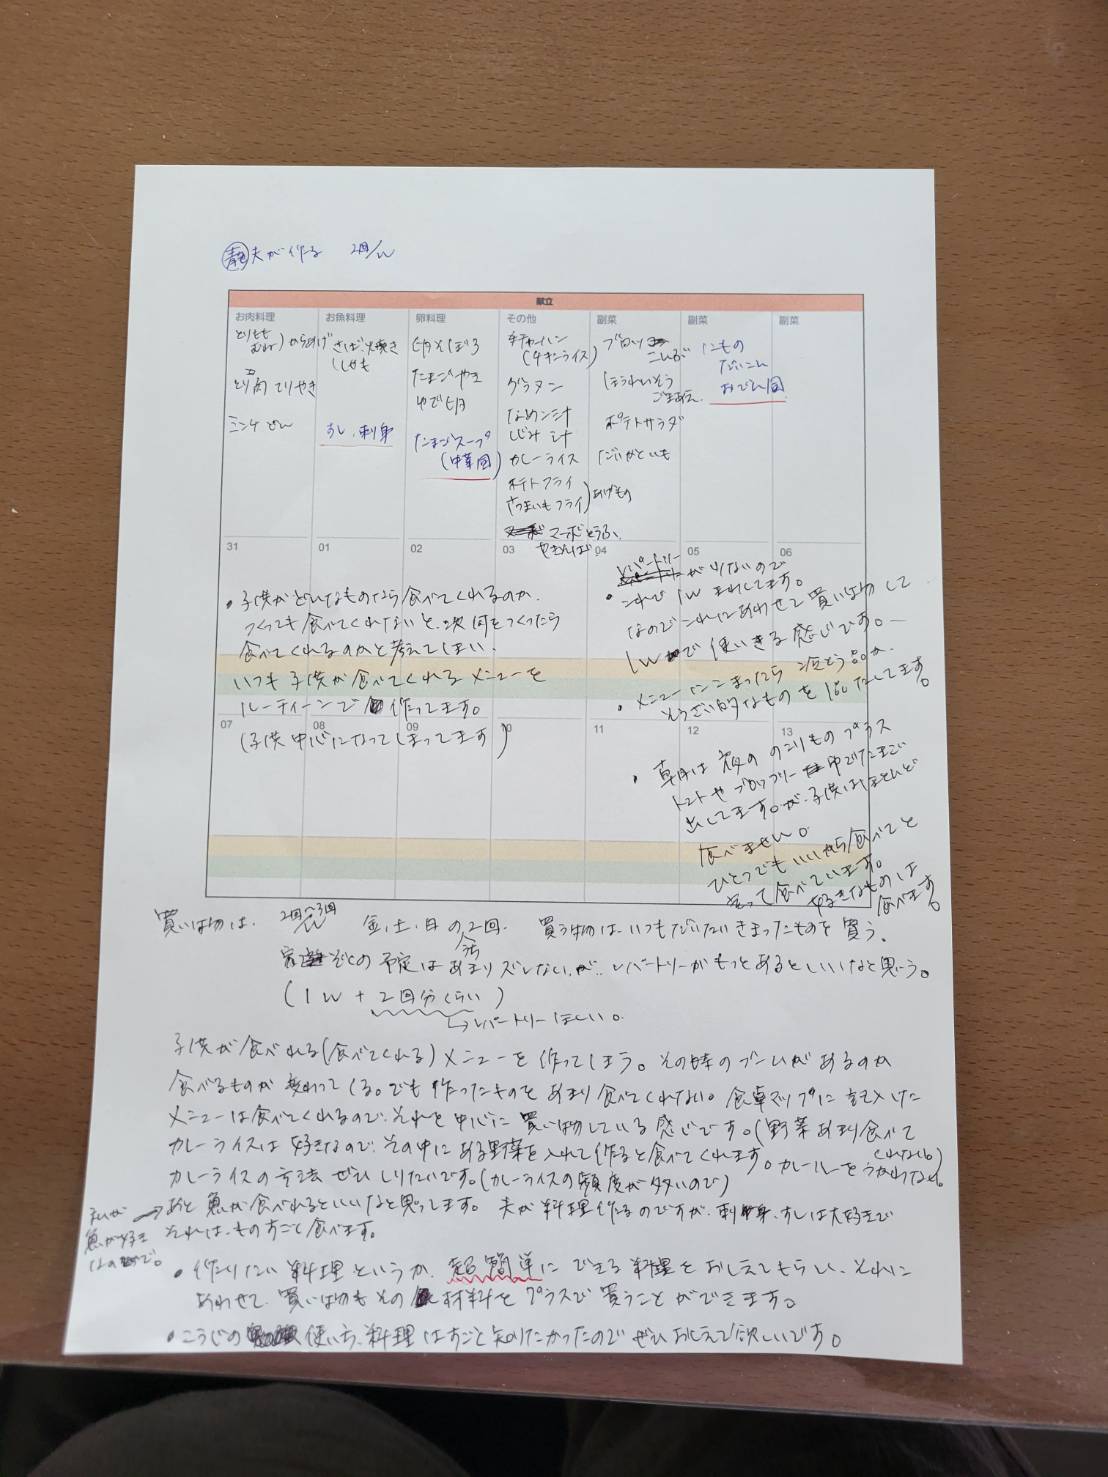 青 夫が作る 2回/w
献立
お肉料理 お魚料理 卵料理 その他 副菜 副菜 副菜
とりもも
むね)からあげ
とり肉 てりやき
ミンチ どん
さばしお焼き
しゃも
すし、刺身
卵そぼろ
たまごやき
ゆで卵
たまごスープ
(中華風)
チャーハン
(チキンライス)
グラタン
なめこ汁
しじみ汁
カレーライス
ポテトフライ
さつまいもフライ)あげもの
マーボとうふ
やきそば
ブロッコリー
こんぶ
ほうれいそう
ごまあえ
ポテトサラダ
だいがくいも
にもの
だいこん
おでん風
31 01 02 03 04 05 06
・子供がどんなものなら食べてくれるのか、
つくっても食べてくれないと、次何をつくったら
食べてくれるのかと考えてしまい、
いつも子供が食べてくれるメニューを
ルーティーンで作ってます。
(子供中心になってしまってます)
・レパートリーが少ないので
これで1wまわしてます。
なのでこれにあわせて買い物して
1wで使いきる感じです。
・メニューにこまったら冷とう品か、
そうざい的なものを1品だしてます。
07 08 09 10 11 12 13
・朝は夜ののこりものプラス
トマトやブロッコリーゆでたまご
出してます。が、子供はほとんど
食べません。
ひとつでもいいから食べてと
言って食べています。
好きなものは
食べます。
買い物は、2回~3回/w 金、土、日の内2回、買う物はいつもだいたいきまったものを買う。
家ぞくの予定はあまりズレないが、レパートリーがもっとあるといいなと思う。
(1w+2回分くらい)
→レパートリーほしい。
子供が食べれる(食べてくれる)メニューを作ってしまう。その時のブームがあるのか
食べるものが変わってくる。でも作ったものをあまり食べてくれない。食卓マップに記入した
メニューは食べてくれるので、それを中心に買い物している感じです。(野菜あまり食べて
くれない)
カレーライスは好きなので、その中にある野菜を入れて作ると食べてくれます。カレールーをつかわない
カレーライスの方法ぜひしりたいです。(カレーライスの頻度が多いので)
私が
魚が好き
なので。
→あと魚が食べれるといいなと思っします。夫が料理作るのですが、刺身、すしは大好きで
それは、ものすごく食べます。
・作りたい料理というか、超簡単にできる料理をおしえてもらい、それに
あわせて、買い物もその材料をプラスで買うことができます。
・こうじの使い方、料理はすごく知りたかったのでぜひおしえて欲しいです。